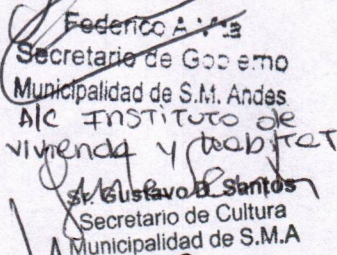 Federico A.
Secretario de Gobierno
Municipalidad de S.M. Andes
A/C INSTITUTO de
vivienda y HabITaT
Sr. Gustavo D. Santos
Secretario de Cultura
Municipalidad de S.M.A